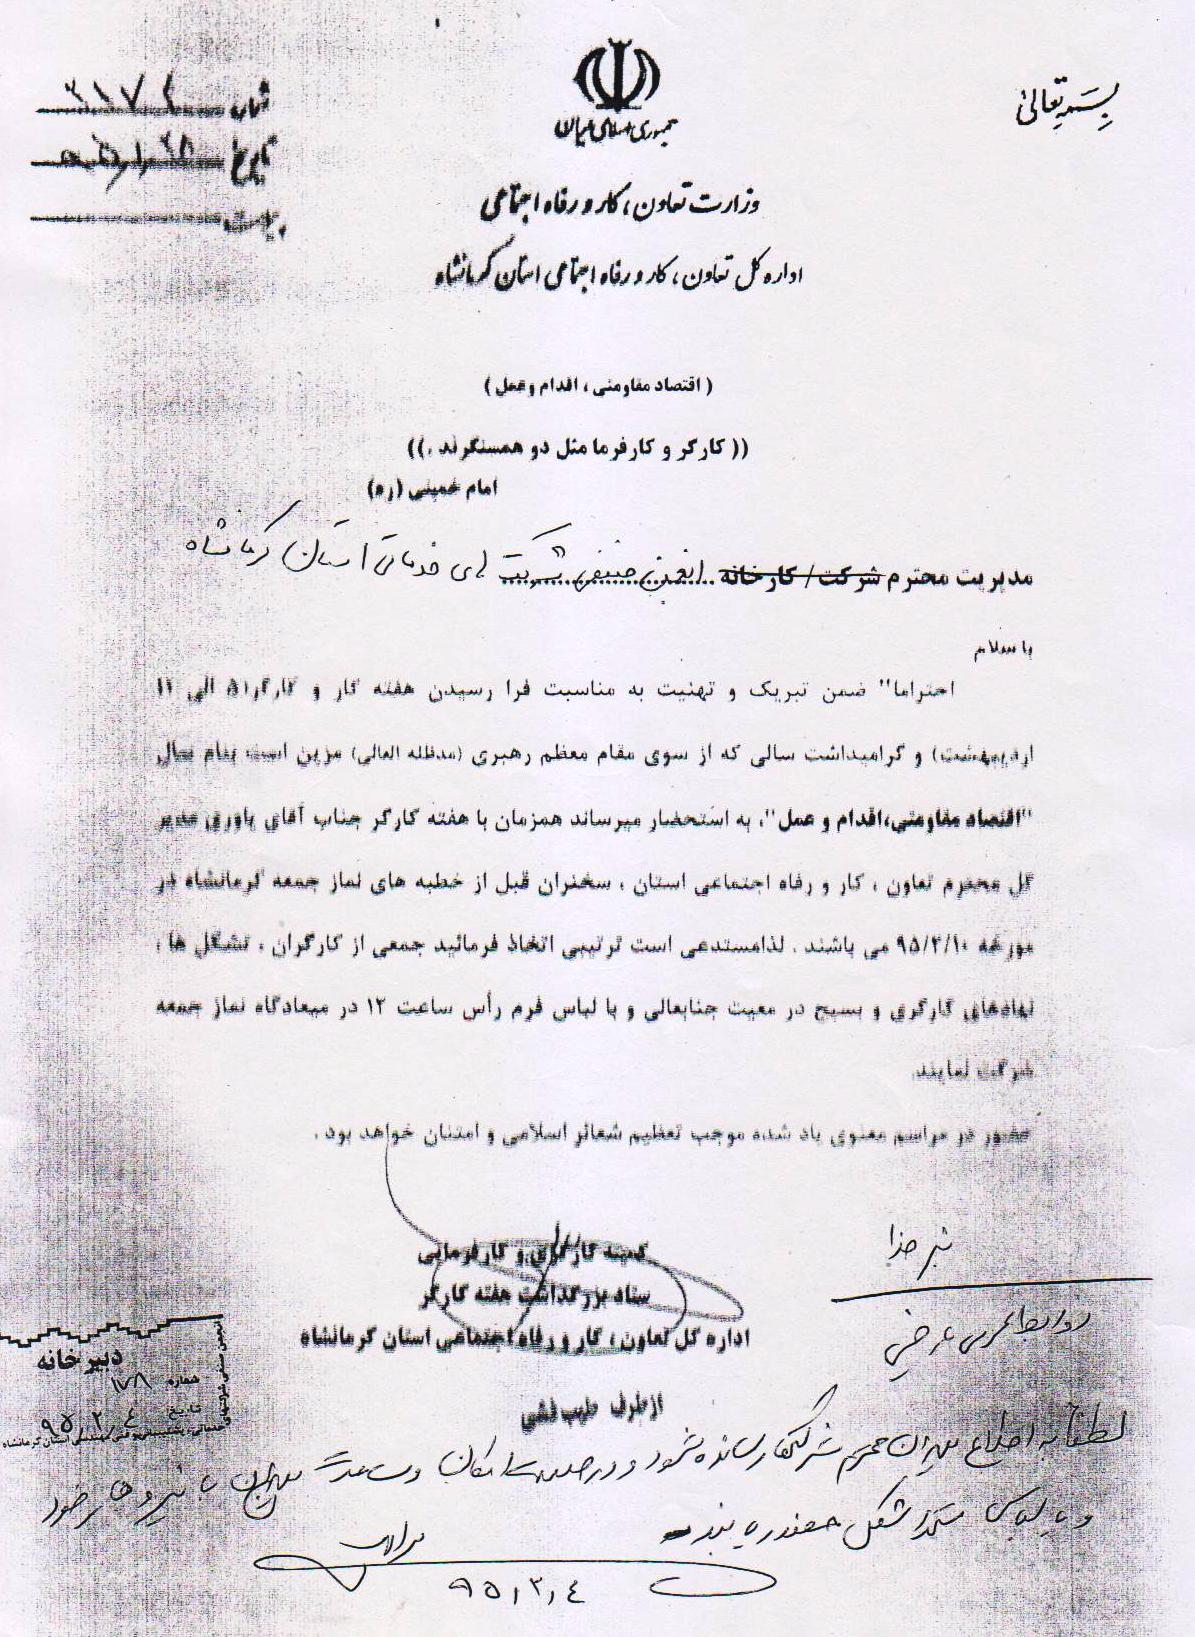 بسمه تعالی
جمهوری اسلامی ایران
شماره
تاریخ
پیوست
وزارت تعاون ، کار و رفاه اجتماعی
اداره کل تعاون ، کار و رفاه اجتماعی استان کرمانشاه
( اقتصاد مقاومتی ، اقدام وعمل )
(( کارگر و کارفرما مثل دو همسنگرند . ))
امام خمینی (ره)
مدیریت محترم شرکت / کارخانه انجمن صنفی شرکت های خدماتی استان کرمانشاه
با سلام
احتراما" ضمن تبریک و تهنیت به مناسبت فرا رسیدن هفته کار و کارگر(۵ الی ۱۱
اردیبهشت) و گرامیداشت سالی که از سوی مقام معظم رهبری (مدظله العالی) مزین است بنام سال
"اقتصاد مقاومتی،اقدام و عمل"، به استحضار میرساند همزمان با هفته کارگر جناب آقای یاوری مدیر
کل محترم تعاون ، کار و رفاه اجتماعی استان ، سخنران قبل از خطبه های نماز جمعه کرمانشاه در
مورخه ۹۵/۲/۱۰ می باشند . لذامستدعی است ترتیبی اتخاذ فرمائید جمعی از کارگران ، تشکل ها ،
نهادهای کارگری و بسیج در معیت جنابعالی و با لباس فرم رأس ساعت ۱۲ در میعادگاه نماز جمعه
شرکت نمایند.
حضور در مراسم معنوی یاد شده موجب تعظیم شعائر اسلامی و امتنان خواهد بود .
کمیته کارگری و کارفرمایی
ستاد بزرگداشت هفته کارگر
اداره کل تعاون ، کار و رفاه اجتماعی استان کرمانشاه
ازطرف
روابط عمومی
دبیر خانه
شماره ۱۷۸
تاریخ ۹۵،۲،۴
لطفاً به اطلاع مدیران محترم شرکتها رسانده شود و در صورت امکان و مساعدت مدیران با نیروهای خود
و با لباس متحدالشکل حضور یابند
۹۵،۲،۴